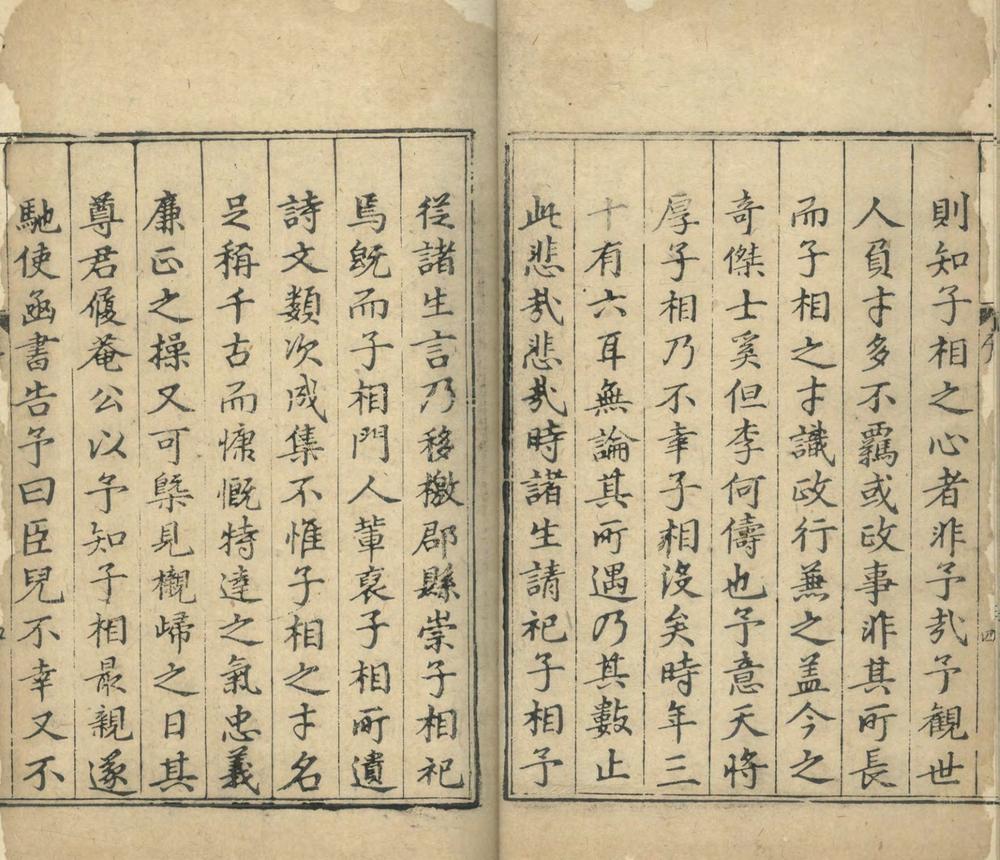 則知子相之心者非予㢤予観世
人負才多不羈或政事非其所長
而子相之才識政行兼之盖今之
奇傑士奚但李何儔也予意天将
厚子相乃不幸子相沒矣時年三
十有六耳無論其所遇乃其數止
此悲㢤悲㢤時諸生請祀子相予
從諸生言乃移檄郡縣崇子相祀
焉既而子相門人輩裒子相所遺
詩文類次成集不惟子相之才名
足稱千古而慷慨特達之氣忠義
廉正之操又可槩見櫬歸之日其
尊君履菴公以予知子相最親遂
馳使函書告予曰臣兒不幸又不
序
四